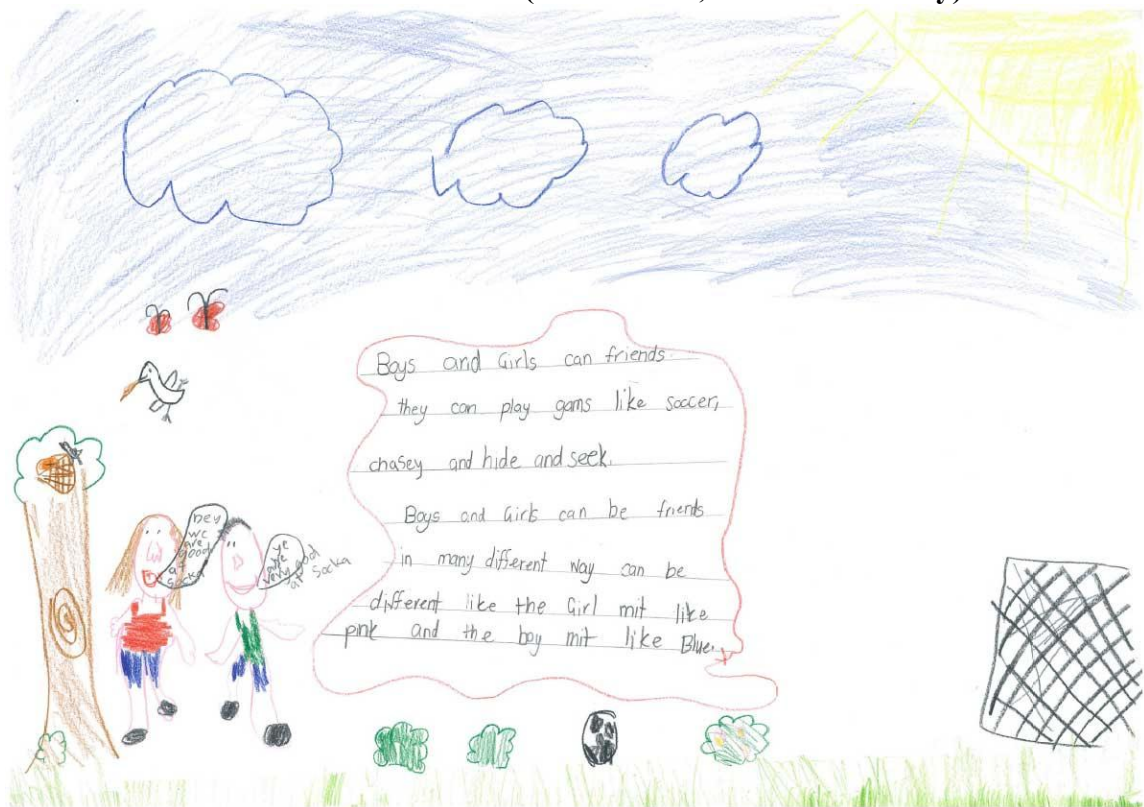 Boys and Girls can friends
they can play gams like soccer,
chasey and hide and seek.
Boys and Girls can be friends
in many different way can be
different like the Girl mit like
pink and the boy mit like Blue.
hey
we
are
good
at
socka
ye
are
very good
at socka